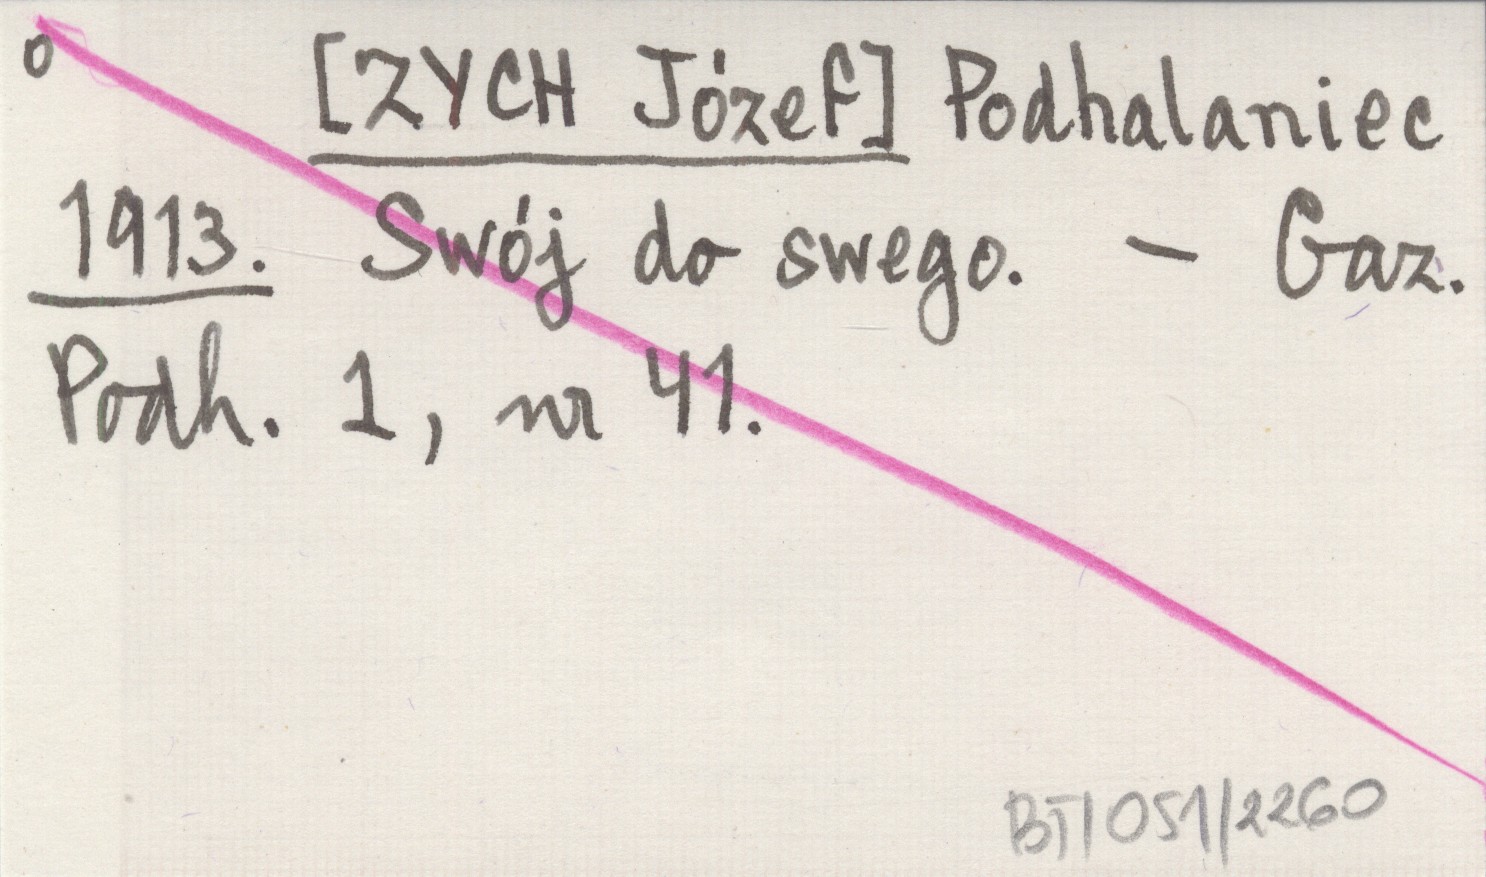 o [ZYCH Józef] Podhalaniec
1913. Swój do swego. – Gaz.
Podh. 1, nr 41.
BT/051/2260